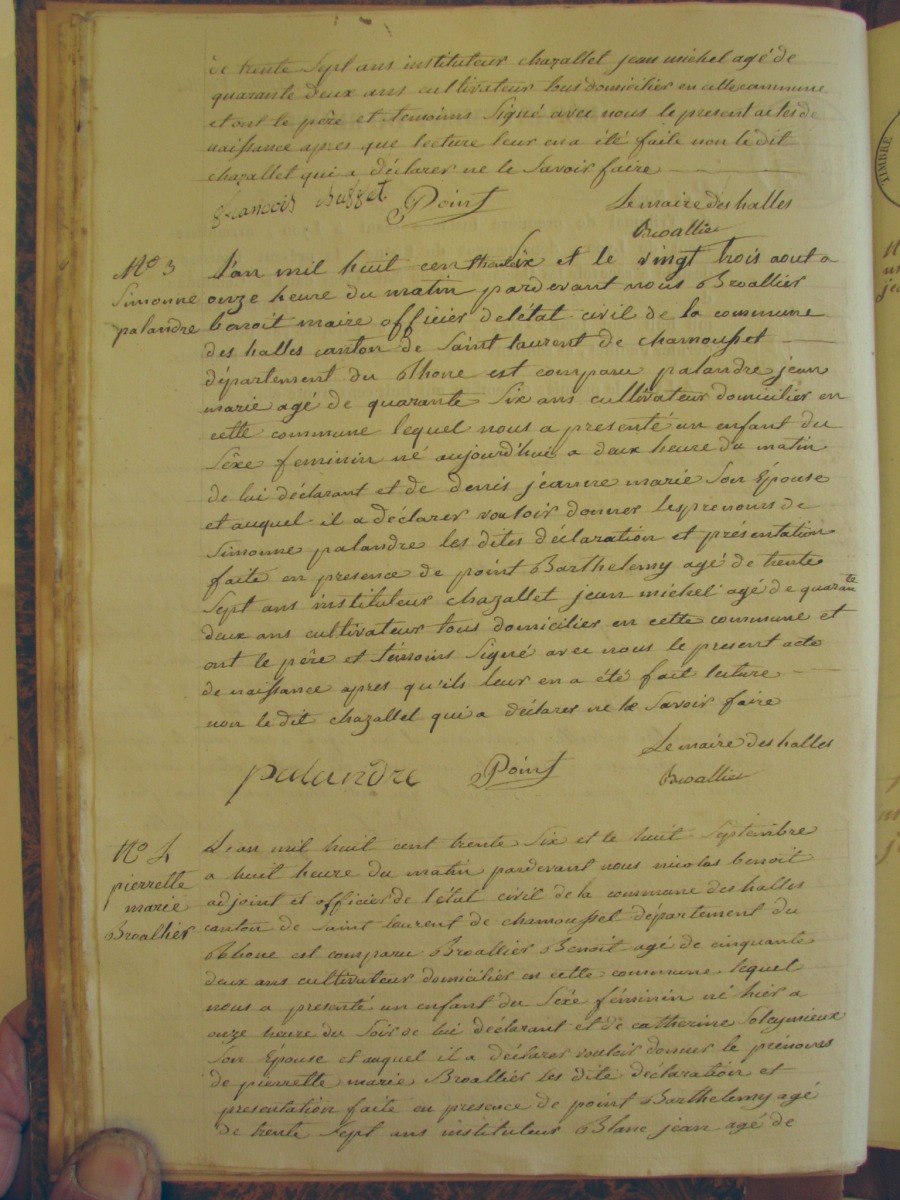 de trente Sept ans instituteur chazallet jean michel agé de
quarante deux ans cultivateur tous domicilier en cette commune
et ont le père et temoins Signé avec nous le present acte de
naissance apres que lecture leur en a été faite non le dit
chazallet qui a déclarer ne le Savoir faire
françois Point Le maire des halles
Broallier
No 3
Simonne
palandre
L'an mil huit cent trente Six et le vingt trois aout a
onze heure du matin pardevant nous Broallier
benoit maire officier de létat civil de la commune
des halles canton de Saint laurent de chamousset
département du Rhone est comparu palandre jean
marie agé de quarante Six ans cultivateur domicilier en
cette commune lequel nous a presenté un enfant du
Sêxe feminin né aujourd'hui a deux heure du matin
de lui déclarant et de denis jeanne marie Son Epouse
et auquel il a déclarer vouloir donner les prenoms de
Simonne palandre les dites déclaration et présentation
faite en presence de point Barthelemy agé de trente
Sept ans instituteur chazallet jean michel agé de quarante
deux ans cultivateur tous domicilier en cette commune et
ont le père et témoins Signé avec nous le present acte
de naissance apres qu'ils leur en a été fait lecture
non le dit chazallet qui a déclarer ne le Savoir faire
palandre Point Le maire des halles
Broallier
No 4
pierrette
marie
Broallier
L'an mil huit cent trente Six et le huit Septembre
a huit heure du matin pardevant nous nicolas benoit
adjoint et officier de l'état civil de la commune des halles
canton de Saint laurent de chamousset département du
Rhone est comparu Broallier Benoit agé de cinquante
deux ans cultivateur domicilier en cette commune lequel
nous a presenté un enfant du Sêxe féminin né hier a
onze heure du Soir de lui déclarant et de catherine Soleymieux
Son Epouse et auquel il a déclarer vouloir donner le prénoms
de pierrette marie Broallier les dite déclaration et
presentation faite en presence de point Barthelemy agé
de trente Sept ans instituteur Blanc jean agé de
TIMBRE